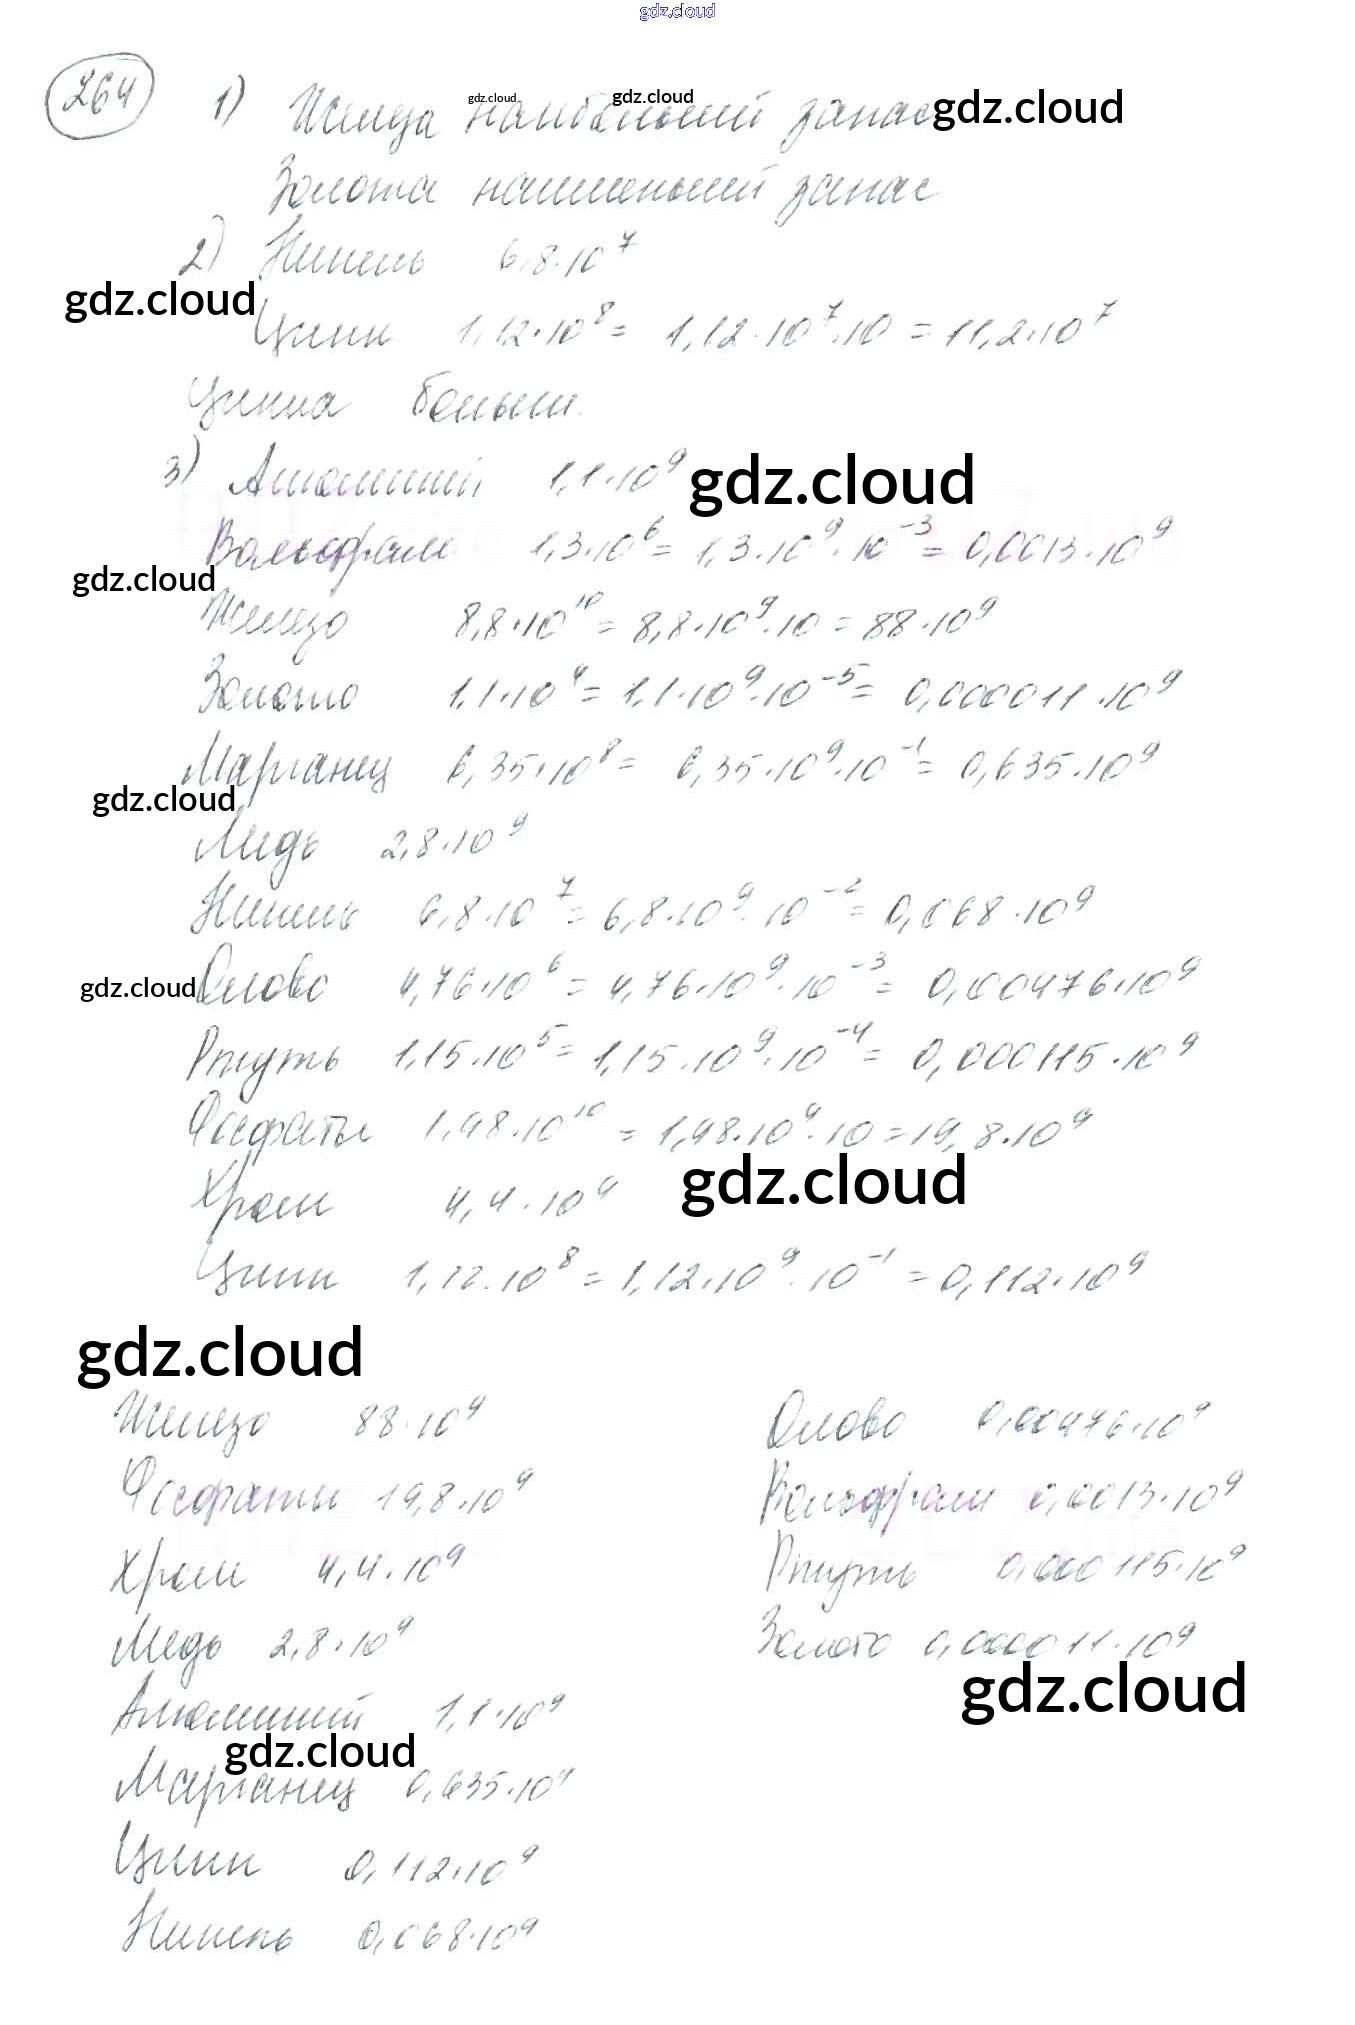 gdz.cloud
264 1) Железа наибольший запас
gdz.cloud gdz.cloud gdz.cloud
Золота наименьший запас
2) Никель 6,8·10⁷
gdz.cloud
Цинк 1,12·10⁸ = 1,12·10⁷·10 = 11,2·10⁷
Цинка больше.
3) Алюминий 1,1·10⁹
gdz.cloud
Вольфрам 1,3·10⁶ = 1,3·10⁹·10⁻³ = 0,0013·10⁹
gdz.cloud
Железо 8,8·10¹⁰ = 8,8·10⁹·10 = 88·10⁹
Золото 1,1·10⁴ = 1,1·10⁹·10⁻⁵ = 0,000011·10⁹
Марганец 6,35·10⁸ = 6,35·10⁹·10⁻¹ = 0,635·10⁹
gdz.cloud
Медь 2,8·10⁹
Никель 6,8·10⁷ = 6,8·10⁹·10⁻² = 0,068·10⁹
gdz.cloud
Олово 4,76·10⁶ = 4,76·10⁹·10⁻³ = 0,00476·10⁹
Ртуть 1,15·10⁵ = 1,15·10⁹·10⁻⁴ = 0,000115·10⁹
Фосфаты 1,98·10¹⁰ = 1,98·10⁹·10 = 19,8·10⁹
gdz.cloud
Хром 4,4·10⁹
Цинк 1,12·10⁸ = 1,12·10⁹·10⁻¹ = 0,112·10⁹
gdz.cloud
Железо 88·10⁹
Фосфаты 19,8·10⁹
Хром 4,4·10⁹
Медь 2,8·10⁹
Алюминий 1,1·10⁹
gdz.cloud
Марганец 0,635·10⁹
Цинк 0,112·10⁹
Никель 0,068·10⁹
Олово 0,00476·10⁹
Вольфрам 0,0013·10⁹
Ртуть 0,000115·10⁹
Золото 0,000011·10⁹
gdz.cloud